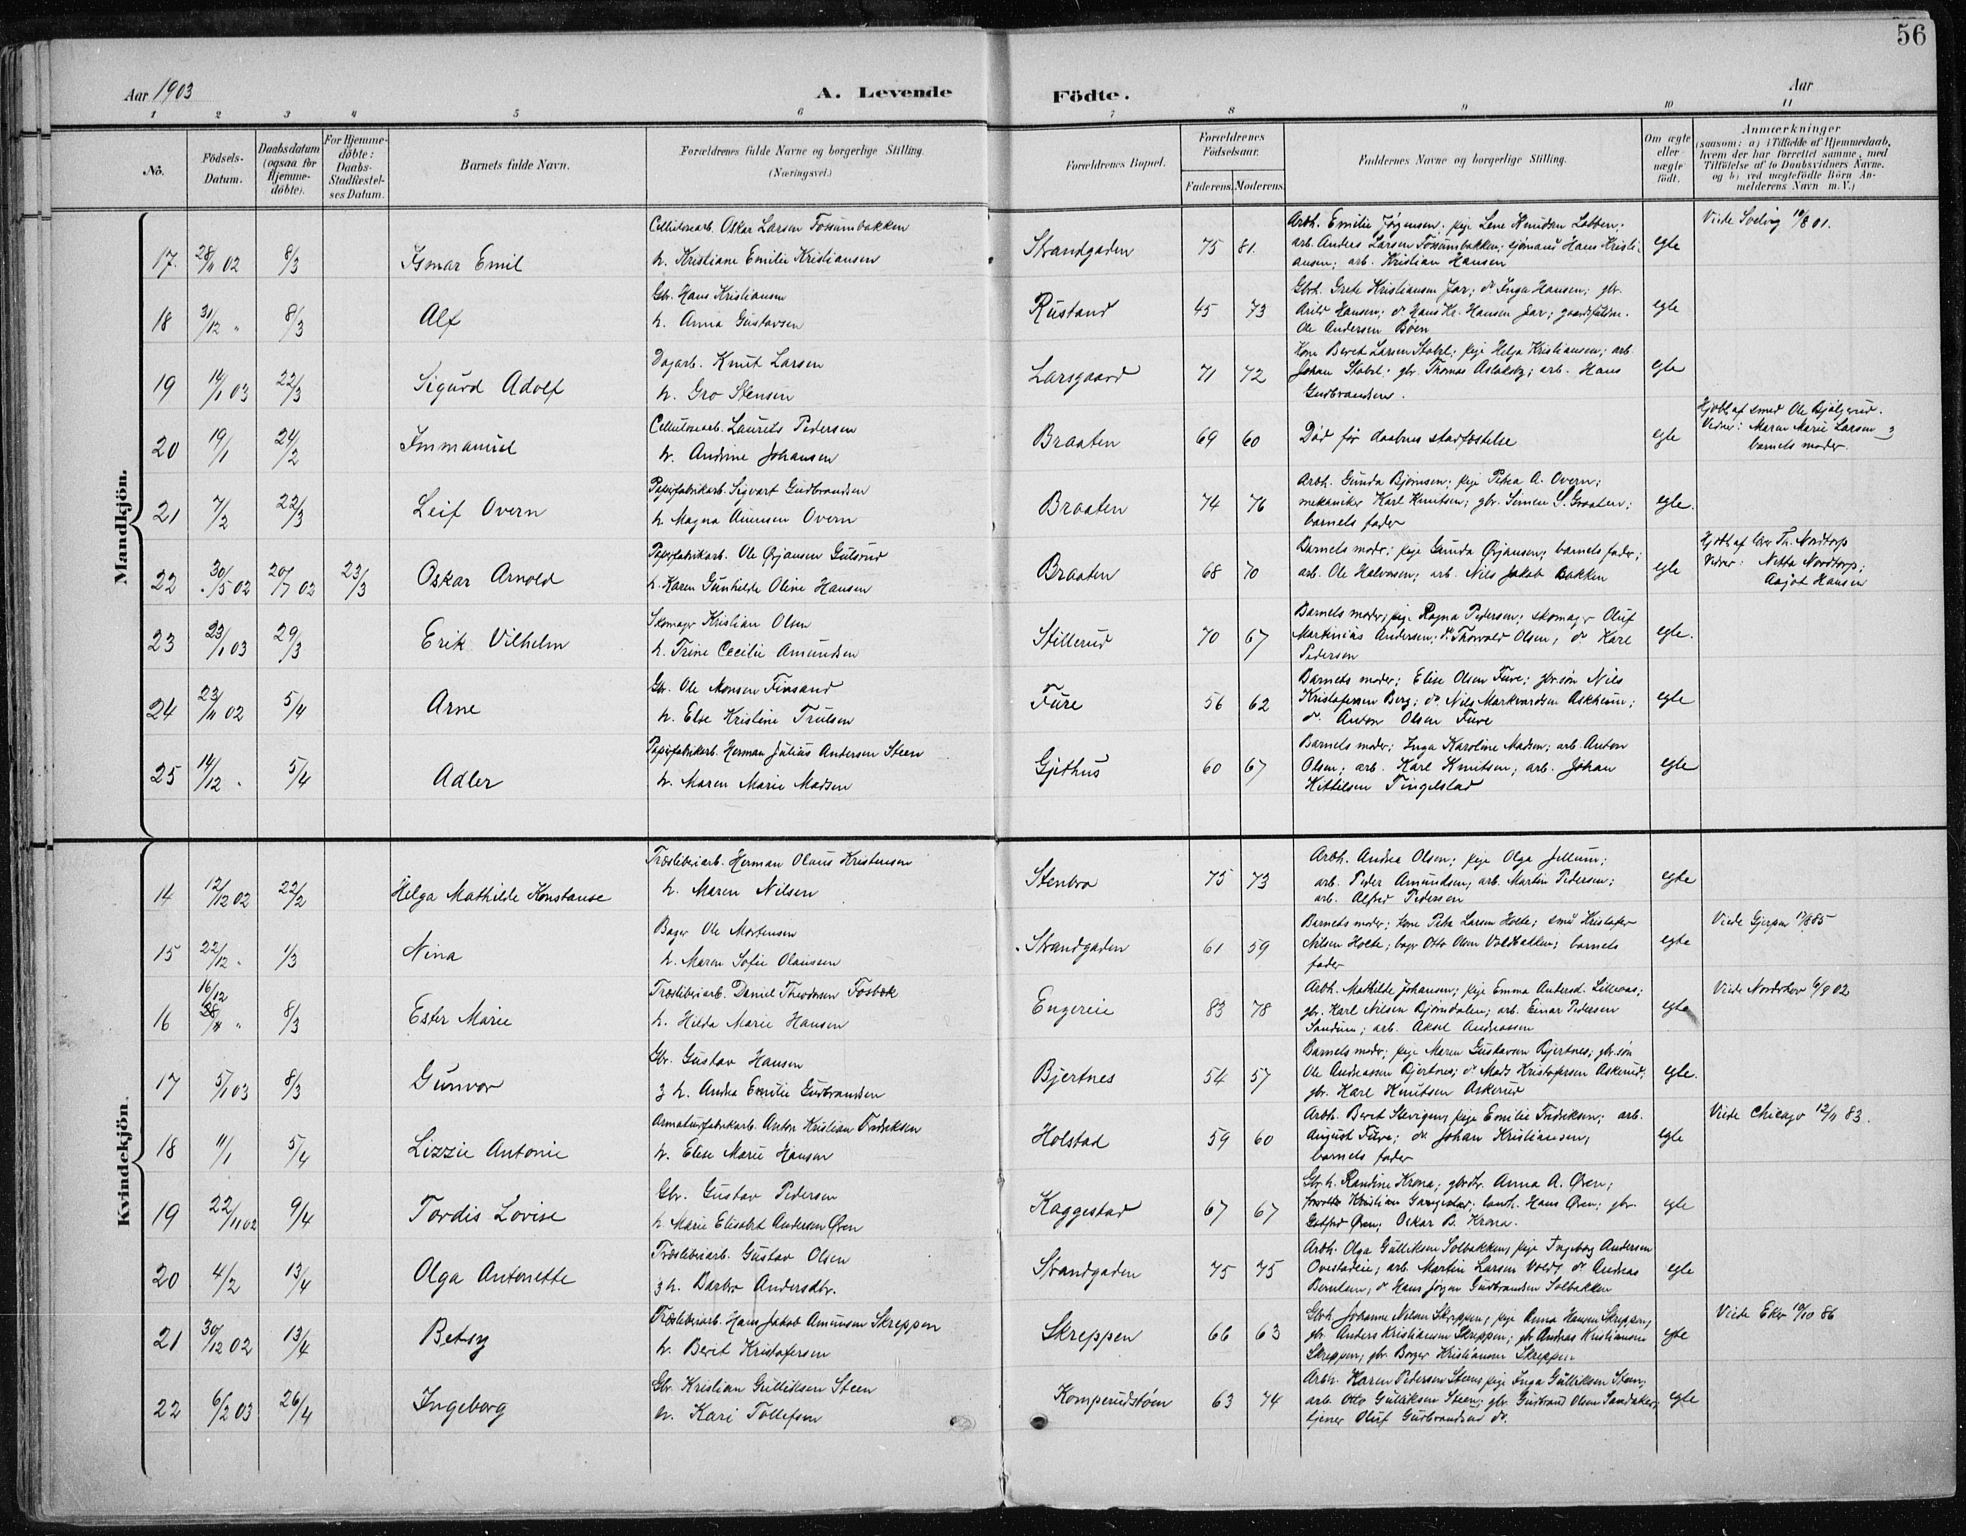 56
Aar 1903
A. Levende
Födte.
Aar
1 2 3 4 5 6 7 8 9 10 11
No.
Födsels-
Datum.
Daabsdatum
(ogsaa for
Hjemme-
döbte).
For Hjemme-
döbte:
Daabs-
Stadfæstel-
ses Datum.
Barnets fulde Navn.
Forældrenes fulde Navne og borgerlige Stilling.
(Næringsvei.)
Forældrenes Bopæl.
Forældrenes
Födselsaar.
Faderens. Moderens.
Faddernes Navne og borgerlige Stilling.
Om ægte
eller
uægte
födt.
Anmærkninger
(saasom: a) i Tilfælde af Hjemmedaab,
hvem der har forrettet samme, med
Tilföielse af to Daabsvidners Navne.
og b) ved uægtefödte Börn An-
melderens Navn m. V.)
Mandkjön.
17. 28/11 02 8/3 Ismar Emil
Cellulosearb. Oskar Larsen Fossumbakken
h. Kristiane Emilie Kristiansen
Strandgaden 75 81.
Arbh. Emilie Jørgensen; pige Lene Knudsen Lobben;
arb. Anders Larsen Fossumbakken; sjømand Hans Kristi-
ansen; arb. Kristian Hansen
egte
Viede 10/8 01.
18 31/12 " 8/3 Alf
Gbr. Hans Kristiansen
h. Anna Gustavsen
Rustand 45 73
Gbrh. Grete Kristiansen Jar; do Inga Hansen; gbr.
Arild Hansen; do Hans Kr. Hansen Jar;
Ole Andersen Bøen
egte
19 14/1 03 22/3 Sigurd Adolf
Dagarb. Knut Larsen
h. Gro Stensen
Larsgaard 71 72
Kone Beret Larsen; pige Helga Kristiansen; arb.
Johan; gbr. Thomas Aslaksby; arb. Hans
Gudbrandsen.
egte
20 19/1 24/2 Immanuel
Cellulosearb. Laurits Pedersen
h. Andrine Johansen
Braaten 69 60
Død før daabens stadfæstelse
egte
Hjdøbt af smed Ole Bjølgerud.
Vidner: Maren Marie Larsen &
barnets moder.
21 7/2 22/3 Leif Overn
Papirfabrikarb. Sigvart Gudbrandsen
h. Magna Amunsen Overn
Braaten 74 76
Arbh. Gunda Bjørnsen; pige Petra A. Overn;
mekaniker Karl Knutsen; gbr. Simen S. Graaten;
barnets fader
egte.
22 30/5 02 20/7 02 23/3 Oskar Arnold
Papirfabrikarb. Ole Ørjansen Gulsrud
h. Karen Gunhilde Oline Hansen
Braaten 68 70
Barnets moder; pige Gunda Ørjansen; barnets fader;
arb. Ole Halvorsen; arb. Nils Jakob Bakken
egte
Hjdøbt af Th. Nordtorp
Vidner: Netta Nordtorp;
Aagot Hansen
23 23/1 03 29/3 Erik Vilhelm
Skomager Kristian Olsen
h. Trine Cecilie Amundsen
Stillerud 70 67
Barnets moder; pige Ragna Pedersen; skomager Oluf
Markinius Andersen; do Thorvald Olsen; do Karl
Pedersen
egte.
24 23/11 02 5/4 Arne
Gbr. Ole Monsen Finsand
h. Else Kristine Trulsen
Fure 56 62
Barnets moder; Elise Olsen Fure; gbr.søn Nils
Kristofersen Berg; do Nils Markvardsen Askheim;
do. Anton Olsen Fure
egte
25 14/12 " 5/4 Adler
Papirfabrikarb. Herman Julius Andersen Steen
h. Maren Marie Madsen
Gjethus 60 67
Barnets moder; Inga Karoline Madsen; arb. Anton
Olsen; arb. Karl Knutsen; arb. Johan
Kittelsen Tingelstad
egte
Kvindekjön.
14 12/12 02 22/2 Helga Mathilde Konstanse
Træsliberiarb. Herman Olaus Kristensen
h. Maren Nilsen
Stenbro 75 73
Arbh. Andrea Olsen; pige Olga Jellum;
arb. Peder Amundsen; arb. Martin Pedersen;
arb. Alfred Pedersen
egte
15 22/12 " 1/3 Nina
Bager Ole Mortensen
h. Maren Sofie Olaussen
Strandgaden 61 59
Barnets moder; kone Petra Larsen Holte; smed Kristofer
Nilsen Holte; bager Otto Olsen Voldbakken; barnets
fader
egte
Viede Gjerpen 85
16 16/12 " 8/3 Ester Marie
Træsliberiarb. Daniel Theodorsen Fosbæk
h. Hilda Marie Hansen
Engereie 83 78
Arbh. Mathilde Johansen; pige Emma Andersd. Lilleaas;
gbr. Karl Nilsen Bjørndalen; arb. Einar Pedersen
Sandum; arb. Aksel Andreassen
egte
Viede Norderhov 6/9 02
17 5/1 03 8/3 Gunvor
Gbr. Gustav Hansen
& h. Andrea Emilie Gudbrandsen
Bjertnes 54 57
Barnets moder; pige Maren Gustavsen Bjertnes; gbr.søn
Ole Andreassen Bjertnes; do Mads Kristofersen Askerud;
gbr. Karl Knutsen Askerud
egte.
18 11/1 5/4 Lizzie Antonie
Armaturfabrikarb. Anton Kristian Fredriksen
h. Elise Marie Hansen
Holstad 59 60
Arbh. Beret Stevigen; pige Emilie Fredriksen; arb.
August Fure; do Johan Kristiansen;
barnets fader
egte
Viede Chicago 12/11 83.
19 22/11 02 9/4 Tordis Lovise
Gbr. Gustav Pedersen
h. Marie Elisabet Andersen Øren
Kaggestad 67 67
Gbr.h. Randine Krona; gbrdtr. Anna A. Øren;
Kristian Gangestad; landh. Hans Øren; gbr.
Gotfred Øren; Oskar B. Krona.
egte
20 4/2 13/4 Olga Antonette
Træsliberiarb. Gustav Olsen
& h. Barbro Andersdtr.
Strandgaden 75 75
Arbh. Olga Gulliksen Solbakken; pige Ingeborg Andersen
Ovestadeie; arb. Martin Larsen Vold; do Andreas
Berntsen; do Hans Jørgen Gudbrandsen Solbakken
egte
21 30/12 02 13/4 Betsy
Træsliberiarb. Hans Jakob Amunsen Skreppen
h. Berit Kristofersen
Skreppen 66 63
Gbrh. Johanne Nilsen Skreppen; pige Anna Hansen Skreppen;
gbr. Anders Kristiansen Skreppen; gbr Andreas Kristiansen
Skreppen; gbr. Borger Kristiansen Skreppen
egte
Viede Eker 10/10 86
22 6/2 03 26/4 Ingeborg
Gbr. Kristian Gulliksen Steen
h. Kari Tollefsen
Komperudstøen 63 74
Arbh. Karen Pedersen Steen; pige Inga Gulliksen Steen;
arb. Otto Gulliksen Steen; gbr. Gudbrand Olsen Sandaker;
tjener Oluf Gudbrandsen do.
egte